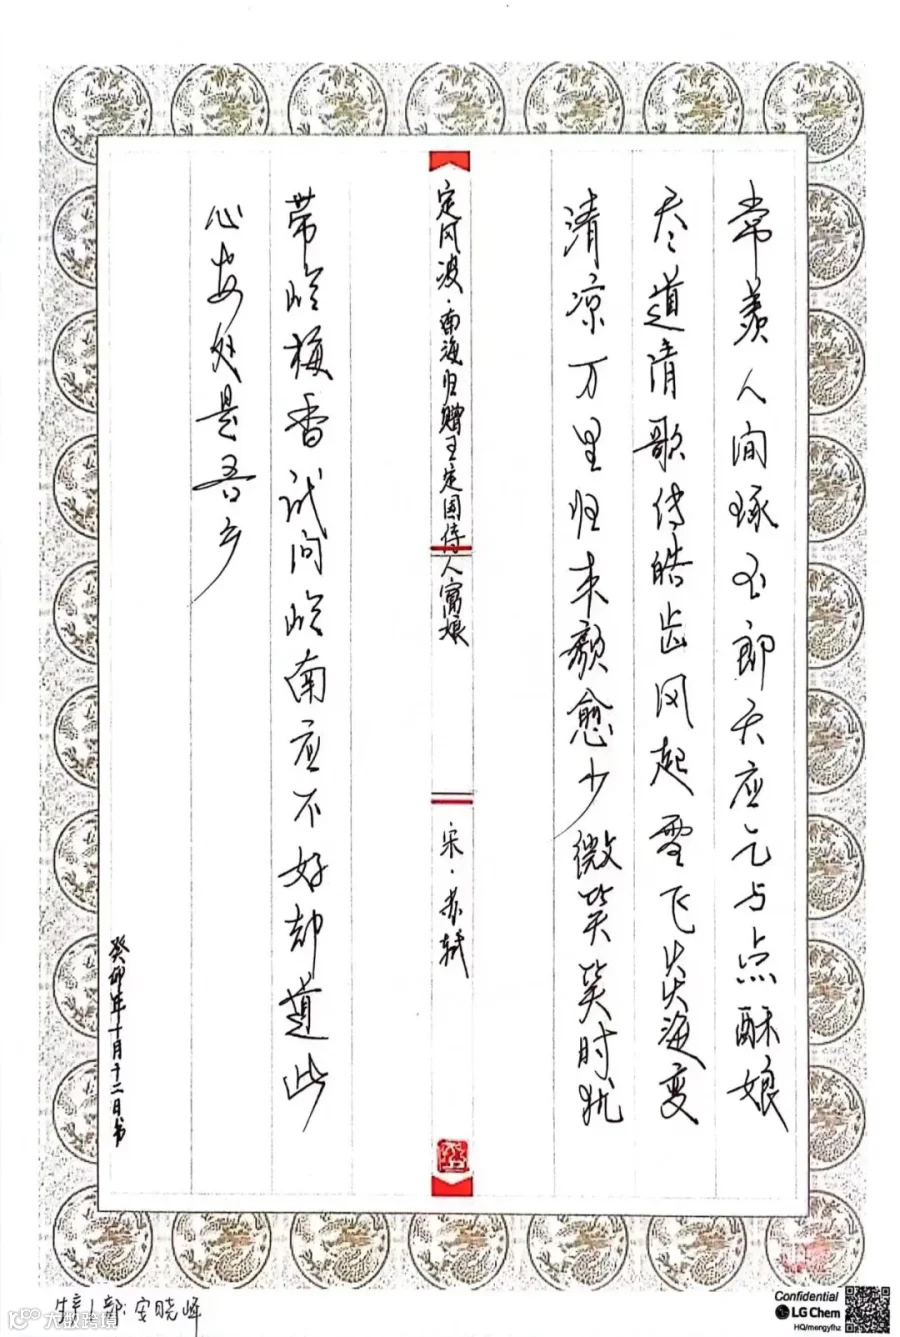 常羡人间琢玉郎天应乞与点酥娘
尽道清歌传皓齿风起雪飞炎海变
清凉万里归来颜愈少微笑笑时犹
定风波·南海归赠王定国侍人寓娘
宋·苏轼
带岭梅香试问岭南应不好却道此
心安处是吾乡
癸卯年十月十二日书
部:安晓峰
大数跨境
Confidential
LG Chem
HQ/mengyfhz